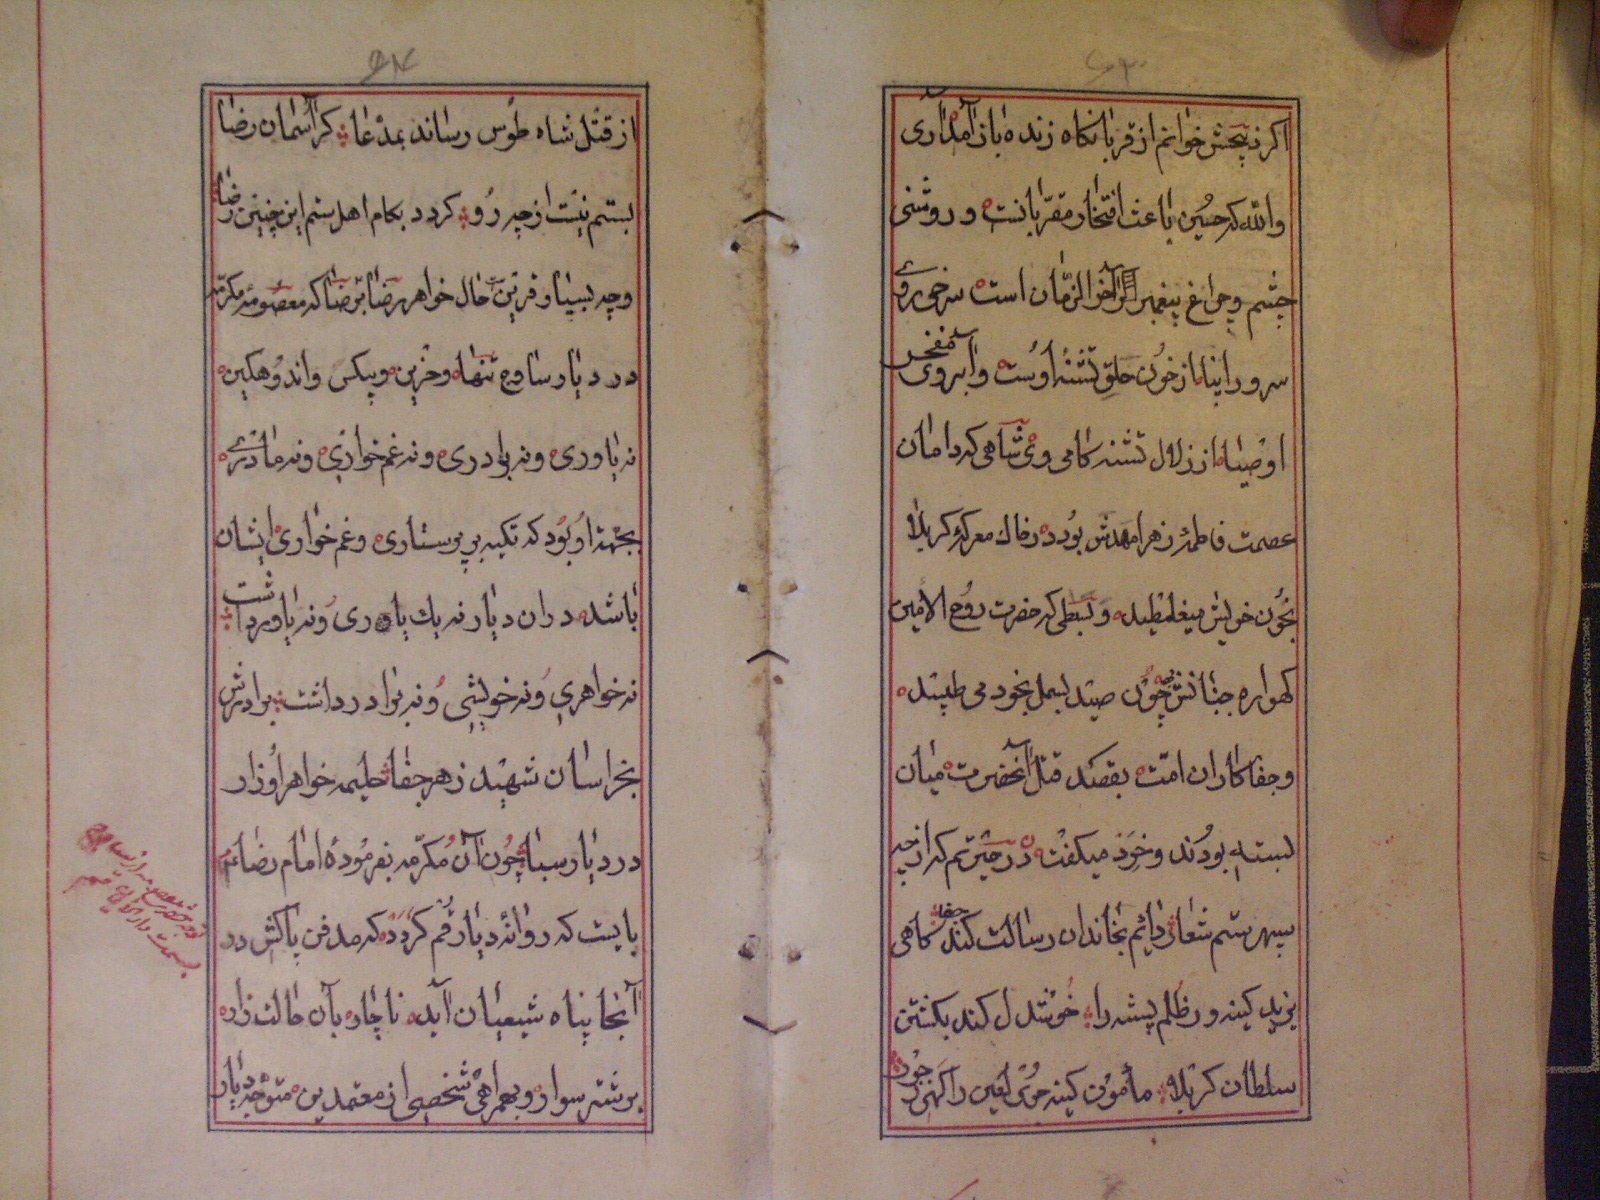 ۶۳
اگر ذبیحش خوانم از قربانگاه زنده باز آمد آری
والله که حسین باعث افتخار مقربانست و روشنی
چشم و چراغ پیغمبر آخرالزمان است سرخ روی
سرور انبیا از خون حلق تشنهٔ اوست و آبروی مفخر
اوصیا از زلال تشنه کامی وی شاهی که دامان
عصمت فاطمهٔ زهرا مهدش بود در خاک معرکهٔ کربلا
بخون خویش میغلطید و سبطی که حضرت روح الامین
کهواره جنبانش بود چون صید بسمل بخود می طپید
و جفا کاران امت بقصد قتل آنحضرت میان
بسته بودند و خرد میکفت در حیرتم که از چه
سپهر ستم شعار دائم بخاندان رسالت کند جفا کاهی
یزید کینه ور ظلم پیشه را خوشدل کند بکشتن
سلطان کربلا مأمون کینه جوی لعین را کهی ز جور
۶۴
از قتل شاه طوس رساند بمدعا کر آسمان رضا
بستم نیست از چه رو کردد بکام اهل ستم این چنین رضا
و چه بسیار قرین حال خواهر رضا بقضا که معصومه مکرمه
در دیار ساوج تنها و حزین و بیکس و اندوهکین
نه یاوری و نه برادری و نه غم خواری و نه مادری
بجهة او بود که تکیه بر پرستاری و غم خواری ایشان
باشد در ان دیار نه یک یاوری و نه یاور داشت
نه خواهری و نه خویشی و نه برادر داشت برادرش
بخراسان شهید زهر جفا حلیمه خواهر او زار
در دیار سبا چون آن مکرمه بفرمودهٔ امام رضا ع
بایست که روانهٔ دیار قم کردد که مدفن پاکش در
آنجا پناه شیعیان آید ناچار بآن حالت زار
بر شتر سوار و بهمراهی شخصی از معتمدین متوجه دیار